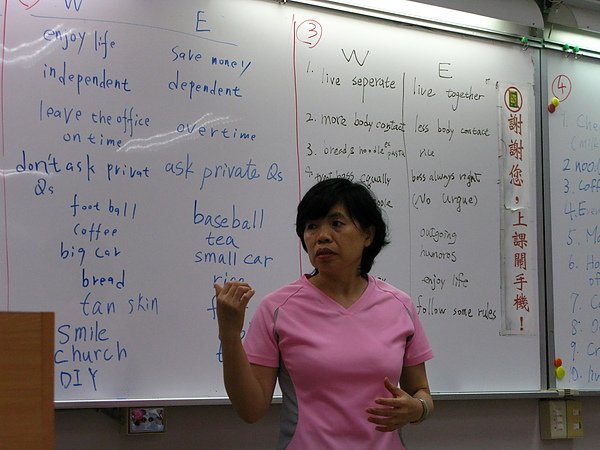 W E
enjoy life save money
independent dependent
leave the office
on time overtime
don't ask privat ask private Qs
Qs
foot ball baseball
coffee tea
big car small car
bread rice
tan skin
smile
church
DIY
3
W E
1. live seperate live together
2. more body contact less body contact
3. bread & noodle pasta rice
4. equally boss always right
(No Urgue)
outgoing
humoros
enjoy life
follow some rules
謝謝您，上課關手機！
4
1. Che
(milk
2. noo
3. Coff
4. Even
5. Ma
6. Ho
of
7. C
8. D
9. Cr